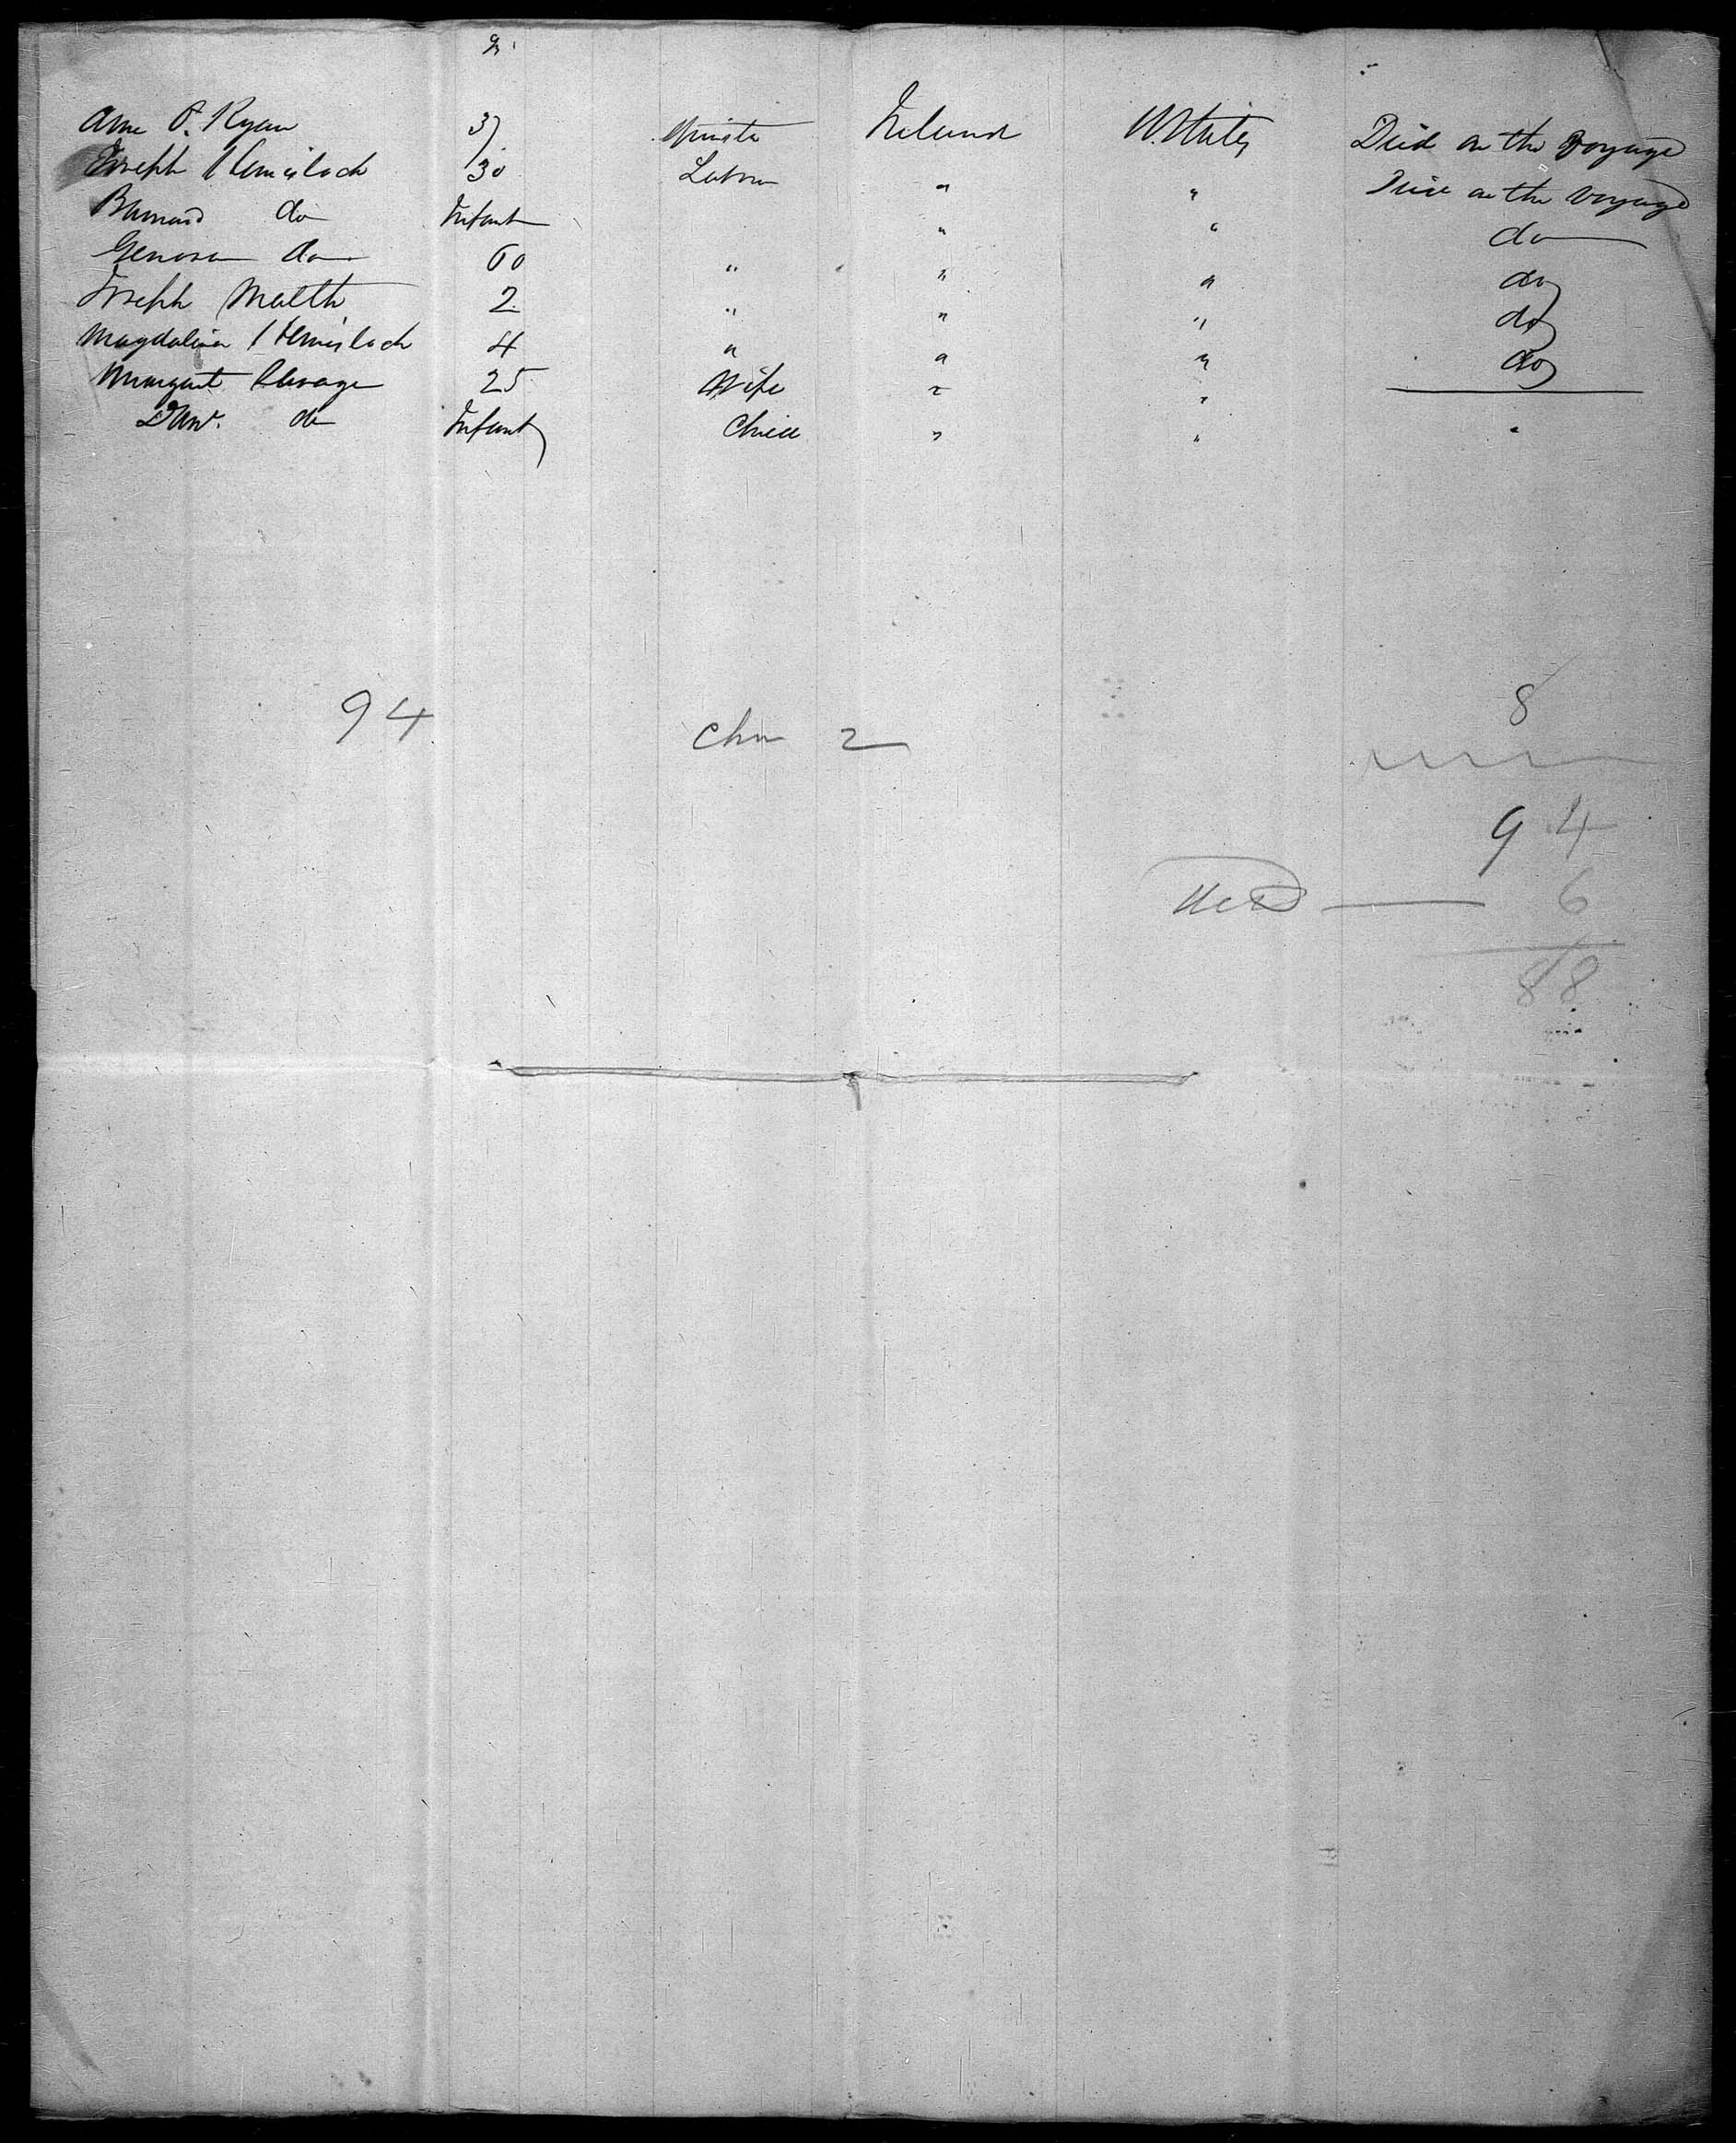 Ann O. Ryan 37 Spinster Ireland U. States Died on the Voyage
Joseph 30 Labour " " Died on the Voyage
Barnard do Infant " " do
Genova do 60 " " " do
Joseph 2 " " " do
Magdalina 4 " " " do
Margaret 25 Wife " "
do Infant Child " "
8
94 Chn 2
94
Ded 6
88